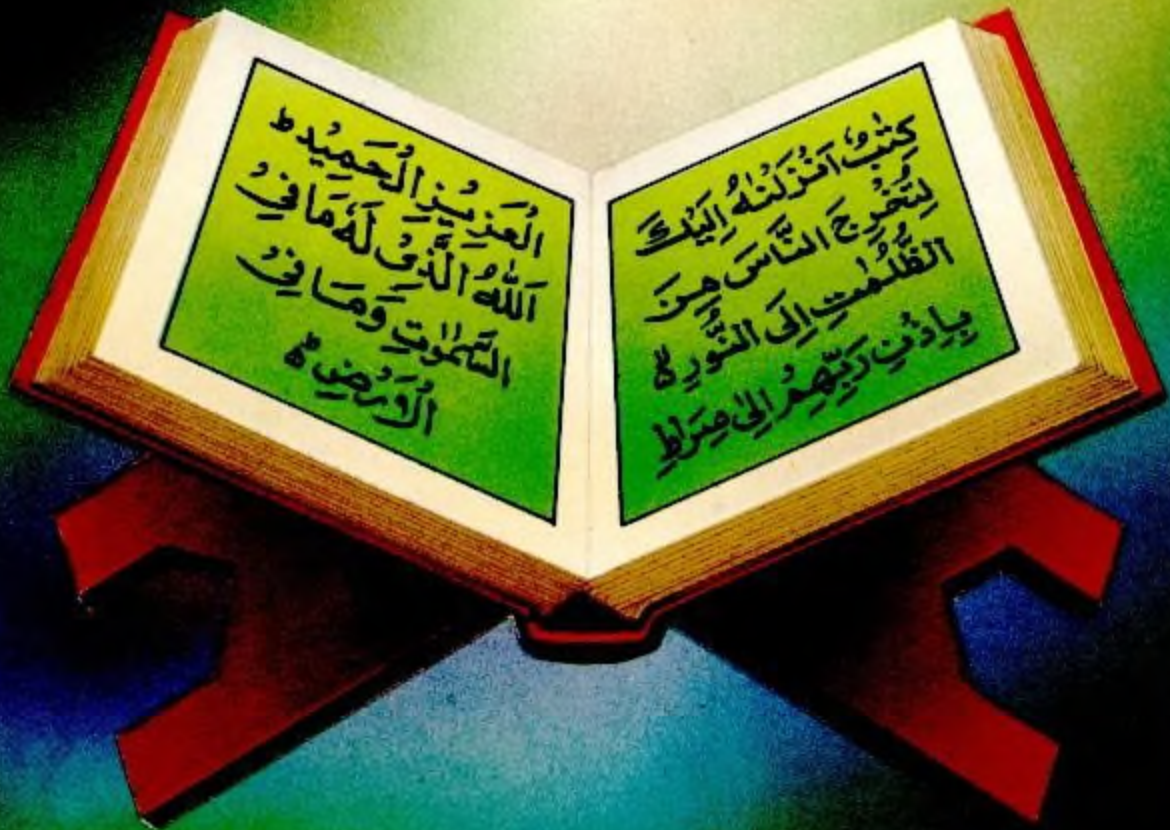 كِتٰبٌ اَنْزَلْنٰهُ اِلَيْكَ
لِتُخْرِجَ النَّاسَ مِنَ
الظُّلُمٰتِ اِلَى النُّوْرِ ۙ
بِاِذْنِ رَبِّهِمْ اِلٰى صِرَاطِ
الْعَزِيْزِ الْحَمِيْدِ ط
اللّٰهِ الَّذِيْ لَهٗ مَا فِي
السَّمٰوٰتِ وَمَا فِي
الْاَرْضِ ۙ